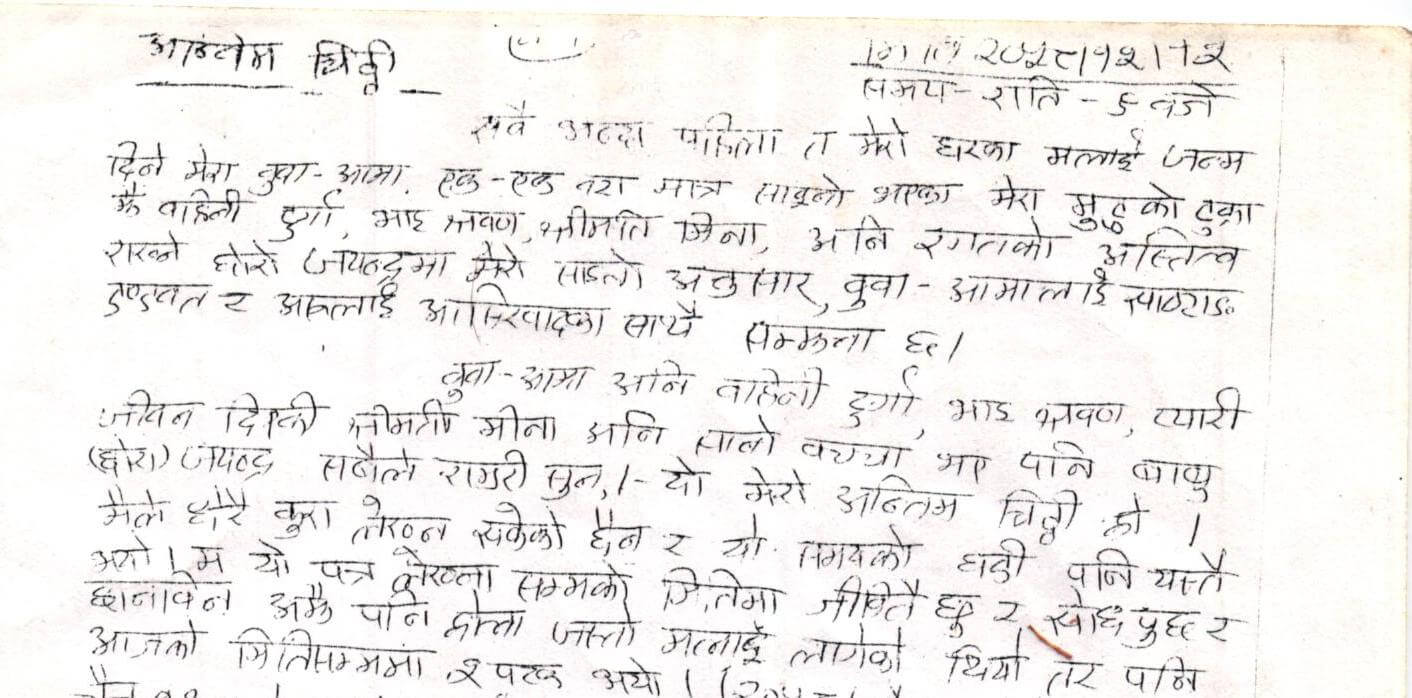 अन्तिम चिठ्ठी
मिति २०५८।१२।१२
समय - राति - ६ वजे
सवै भन्दा पहिला त मेरो घरका मलाई जन्म
दिने मेरा वुवा-आमा, एक-एक मात्र भएका मेरा मुटुको टुक्रा
झै वाहिनी दुर्गा, भाइ श्रवण, श्रीमति मिना, अनि रगतको अस्तित्व
छोरो जयन्द्रमा मेरो साइनो अनुसार, वुवा-आमालाई
दण्डवत र अरुलाई आसिरवादका साथै सम्झना छ।
वुवा-आमा अनि वाहिनी दुर्गा, भाइ श्रवण, प्यारी
जीवन श्रीमती मीना अनि सानो वच्चा भए पनि वावु
(छोरा) जयन्द्र सवैले राम्ररी सुन, ।- यो मेरो अन्तिम चिठ्ठी हो ।
मैले धेरै कुरा लेख्न सकेको छैन र यो समयको घडी पनि यस्तै
भयो । म यो पत्र लेख्ना सम्मको मितिमा जीवितै छु र सोधपुछ र
छानविन अझै पनि होला जस्तो मलाई लागेको थियो तर पनि
आजको मितिसम्ममा २ पटक भयो ।